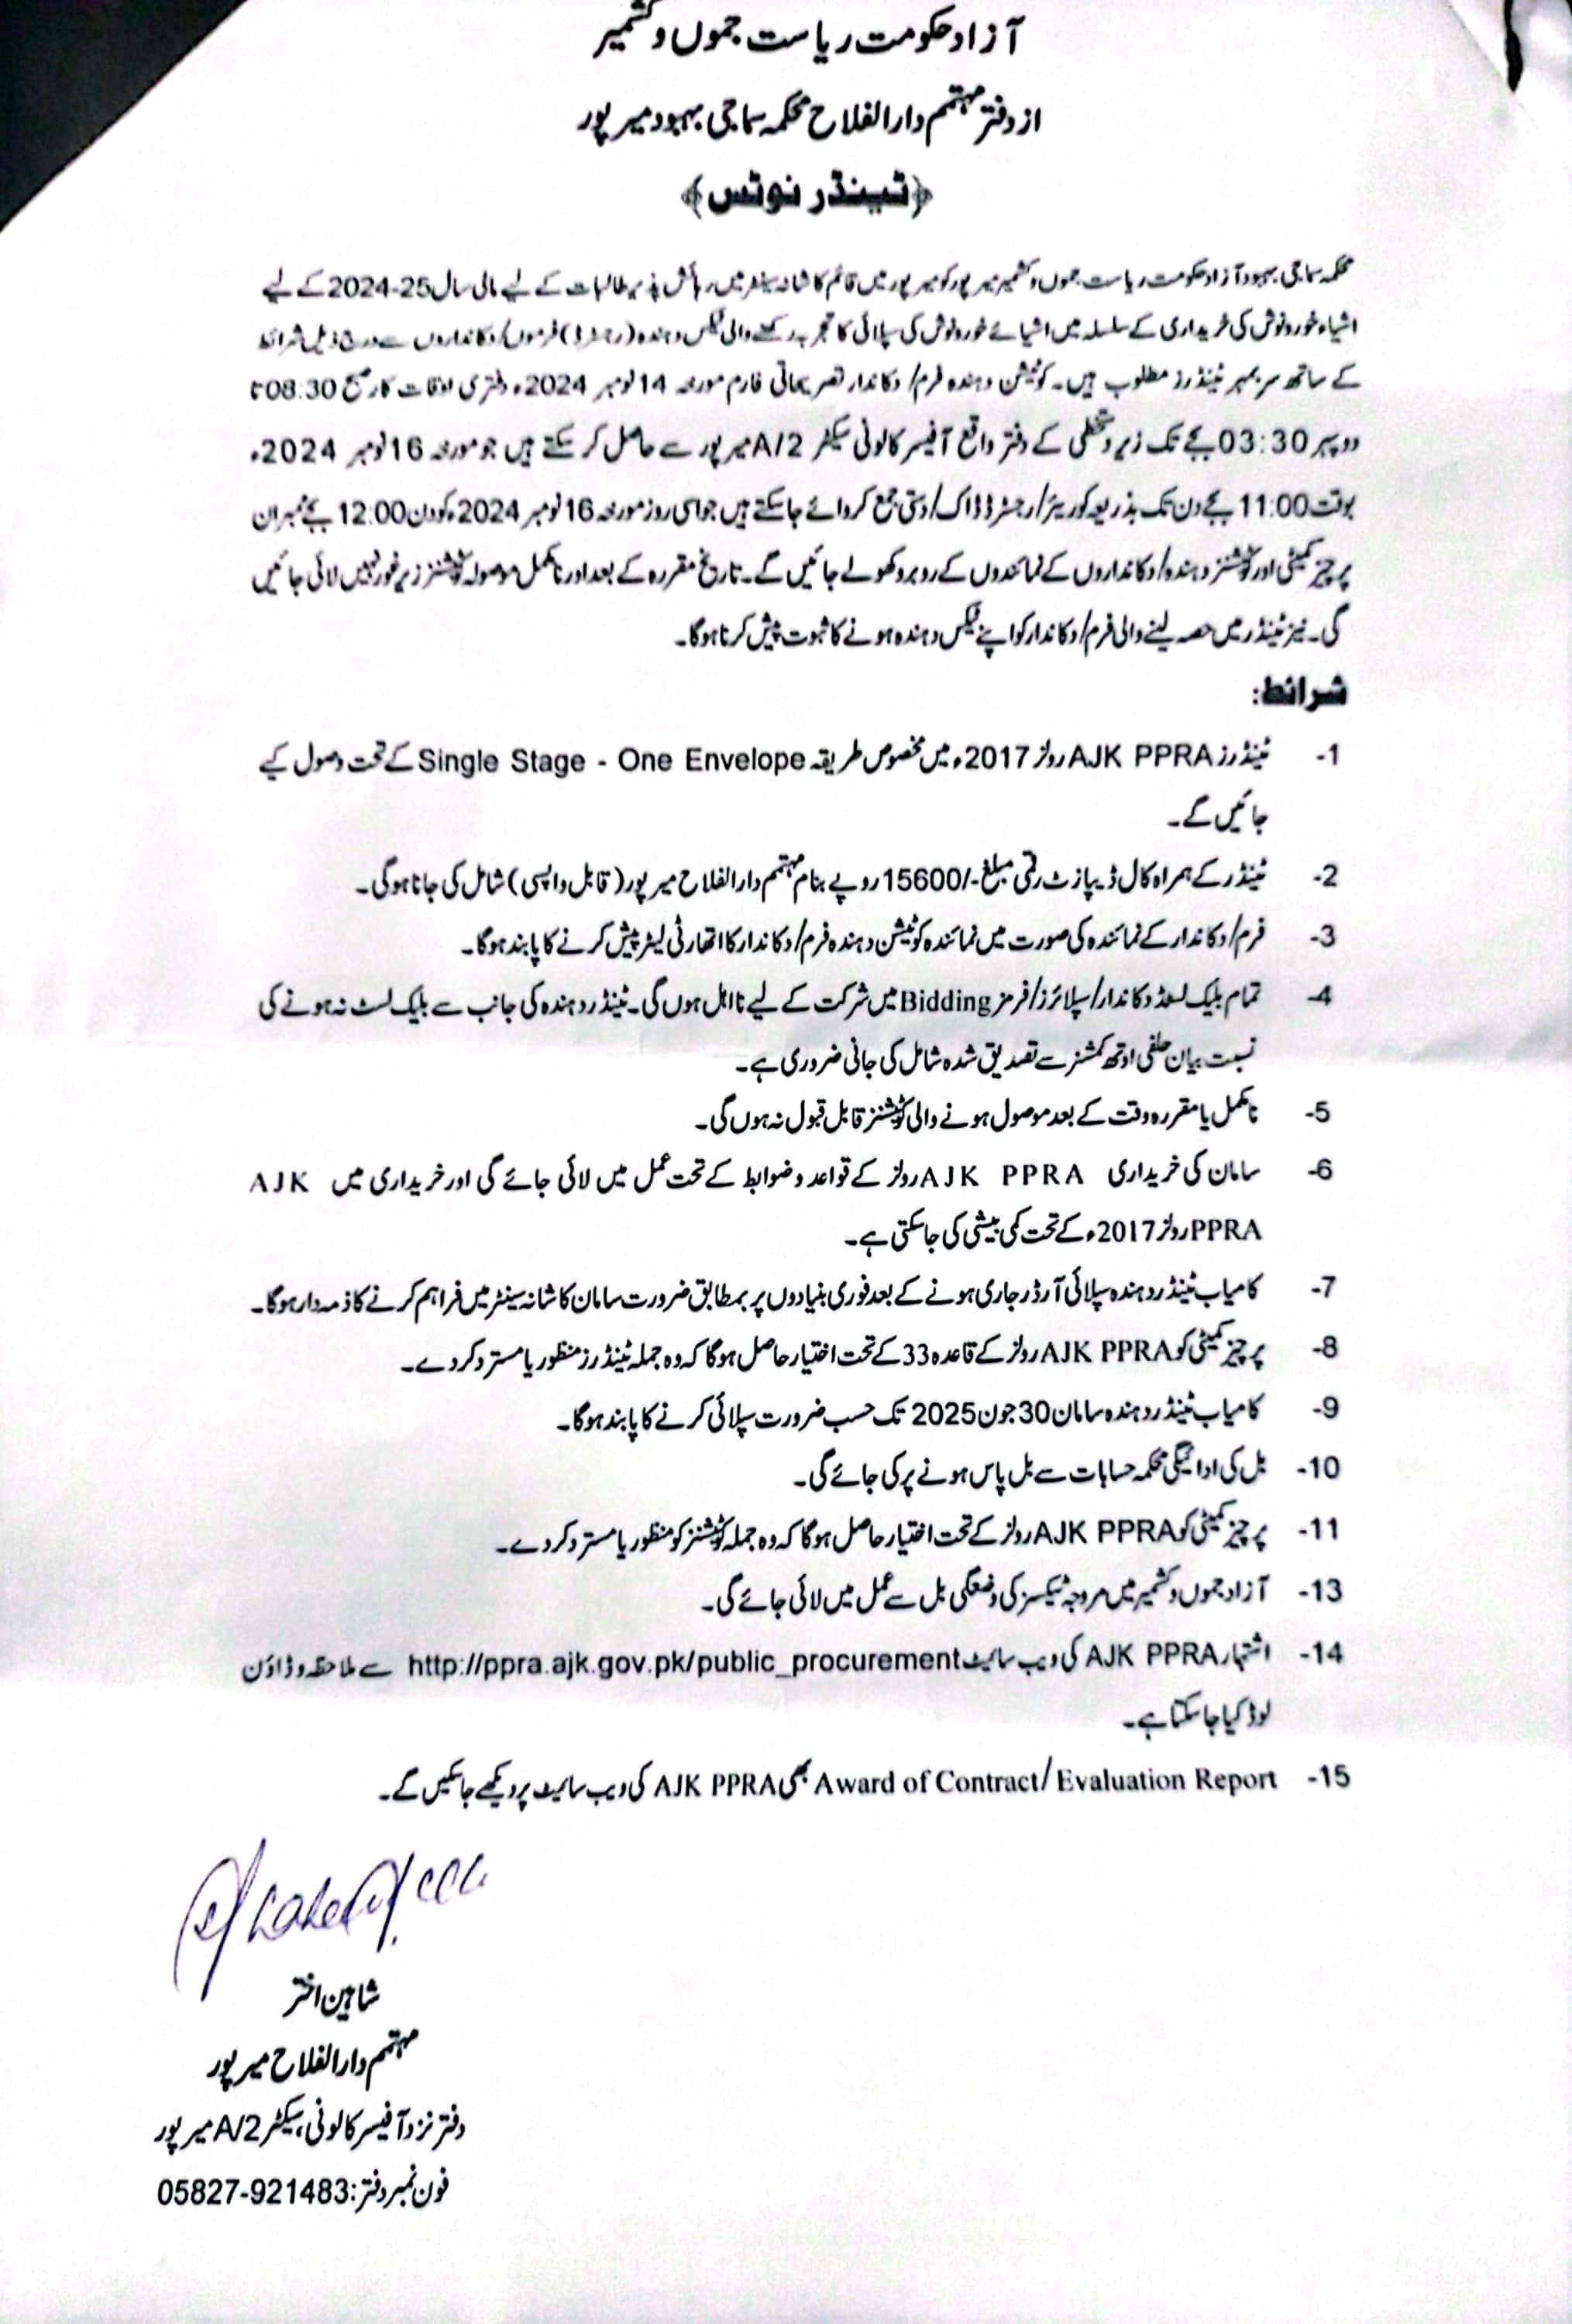 آزاد حکومت ریاست جموں و کشمیر
از دفتر مہتمم دارالفلاح محکمہ سماجی بہبود میرپور
﴿ٹینڈر نوٹس﴾
محکمہ سماجی بہبود آزاد حکومت ریاست جموں و کشمیر میرپور کو میرپور میں قائم کاشانہ سینٹر میں رہائش پذیر طالبات کے لیے مالی سال 2024-25 کے لیے
اشیاء خوردونوش کی خریداری کے سلسلہ میں اشیائے خوردونوش کی سپلائی کا تجربہ رکھنے والی ٹیکس دہندہ (رجسٹرڈ) فرموں/دکانداروں سے درج ذیل شرائط
کے ساتھ سربمہر ٹینڈرز مطلوب ہیں۔ کوٹیشن دہندہ فرم/ دکاندار تصریحاتی فارم مورخہ 14 نومبر 2024ء دفتری اوقات کار صبح 08:30 تا
دوپہر 03:30 بجے تک زیر دستخطی کے دفتر واقع آفیسر کالونی سیکٹر A/2 میرپور سے حاصل کر سکتے ہیں جو مورخہ 16 نومبر 2024ء
بوقت 11:00 بجے دن تک بذریعہ کوریئر/رجسٹرڈ ڈاک/دستی جمع کروائے جا سکتے ہیں جو اسی روز مورخہ 16 نومبر 2024ء کو دن 12:00 بجے ممبران
پرچیز کمیٹی اور کوٹیشنز دہندہ/دکانداروں کے نمائندوں کے روبرو کھولے جائیں گے۔ تاریخ مقررہ کے بعد اور نامکمل موصولہ کوٹیشنز زیر غور نہیں لائی جائیں
گی۔ نیز ٹینڈر میں حصہ لینے والی فرم/دکاندار کو اپنے ٹیکس دہندہ ہونے کا ثبوت پیش کرنا ہوگا۔
شرائط:
1- ٹینڈرز AJK PPRA رولز 2017ء میں مخصوص طریقہ Single Stage - One Envelope کے تحت وصول کیے
جائیں گے۔
2- ٹینڈر کے ہمراہ کال ڈیپازٹ رقمی مبلغ -/15600 روپے بنام مہتمم دارالفلاح میرپور (قابل واپسی) شامل کی جانا ہوگی۔
3- فرم/دکاندار کے نمائندہ کی صورت میں نمائندہ کوٹیشن دہندہ فرم/دکاندار کا اتھارٹی لیٹر پیش کرنے کا پابند ہوگا۔
4- تمام بلیک لسٹڈ دکاندار/سپلائرز/فرمز Bidding میں شرکت کے لیے نااہل ہوں گی۔ ٹینڈر دہندہ کی جانب سے بلیک لسٹ نہ ہونے کی
نسبت بیان حلفی اوتھ کمشنر سے تصدیق شدہ شامل کی جانی ضروری ہے۔
5- نامکمل یا مقررہ وقت کے بعد موصول ہونے والی کوٹیشنز قابل قبول نہ ہوں گی۔
6- سامان کی خریداری AJK PPRA رولز کے قواعد و ضوابط کے تحت عمل میں لائی جائے گی اور خریداری میں AJK
PPRA رولز 2017ء کے تحت کمی بیشی کی جا سکتی ہے۔
7- کامیاب ٹینڈر دہندہ سپلائی آرڈر جاری ہونے کے بعد فوری بنیادوں پر بمطابق ضرورت سامان کاشانہ سینٹر میں فراہم کرنے کا ذمہ دار ہوگا۔
8- پرچیز کمیٹی کو AJK PPRA رولز کے قاعدہ 33 کے تحت اختیار حاصل ہوگا کہ وہ جملہ ٹینڈرز منظور یا مسترد کر دے۔
9- کامیاب ٹینڈر دہندہ سامان 30 جون 2025 تک حسب ضرورت سپلائی کرنے کا پابند ہوگا۔
10- بل کی ادائیگی محکمہ حسابات سے بل پاس ہونے پر کی جائے گی۔
11- پرچیز کمیٹی کو AJK PPRA رولز کے تحت اختیار حاصل ہوگا کہ وہ جملہ کوٹیشنز کو منظور یا مسترد کر دے۔
13- آزاد جموں و کشمیر میں مروجہ ٹیکسز کی وضعگی بل سے عمل میں لائی جائے گی۔
14- اشتہار AJK PPRA کی ویب سائیٹ http://ppra.ajk.gov.pk/public_procurement سے ملاحظہ و ڈاؤن
لوڈ کیا جا سکتا ہے۔
15- Award of Contract/ Evaluation Report بھی AJK PPRA کی ویب سائیٹ پر دیکھے جا سکیں گے۔
شاہین اختر
مہتمم دارالفلاح میرپور
دفتر نزد آفیسر کالونی، سیکٹر A/2 میرپور
فون نمبر دفتر: 05827-921483